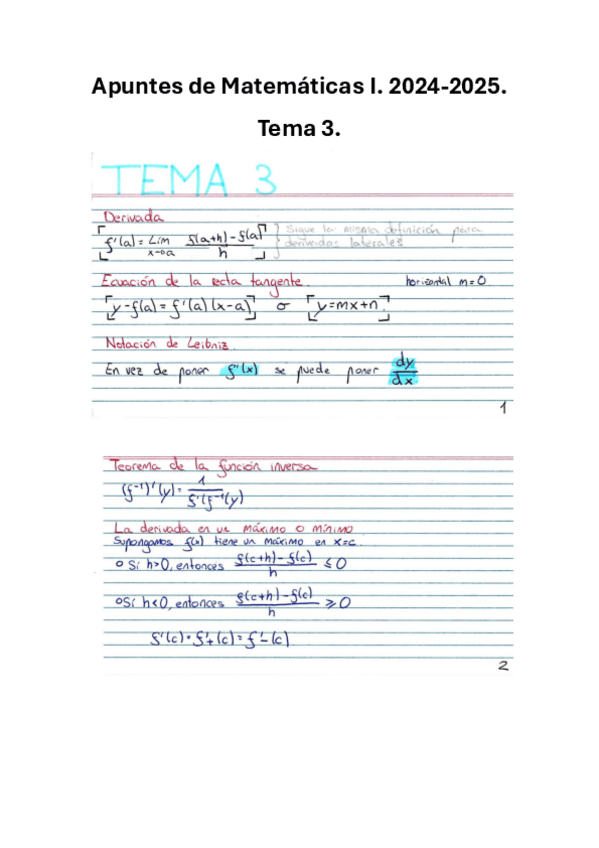 Apuntes de Matemáticas I. 2024-2025.
Tema 3.
TEMA 3
Derivada
f'(a) = Lim x→a f(a+h)-f(a) / h } Sigue la misma definición para
derivadas laterales
Ecuación de la recta tangente. horizontal m=0
y-f(a) = f'(a)(x-a) o y=mx+n
Notación de Leibniz.
En vez de poner f'(x) se puede poner dy/dx
1
Teorema de la función inversa
(f⁻¹)'(y) = 1 / f'(f⁻¹(y)
La derivada en un máximo o mínimo
Supongamos f(x) tiene un máximo en x=c
o Si h>0, entonces f(c+h)-f(c) / h ≤ 0
o Si h<0, entonces f(c+h)-f(c) / h ≥ 0
f'(c) = f'₊(c) = f'₋(c)
2